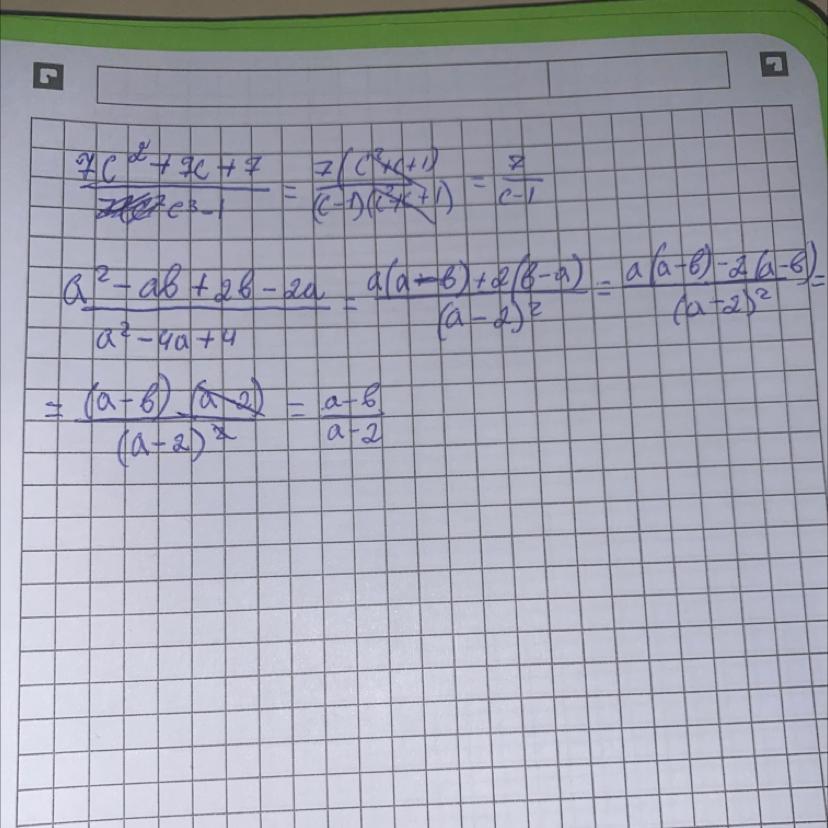 (7c² + 7c + 7)/(c³ - 1) = 7(c² + c + 1)/((c - 1)(c² + c + 1)) = 7/(c - 1)
(a² - ab + 2b - 2a)/(a² - 4a + 4) = (a(a - b) + 2(b - a))/(a - 2)² = (a(a - b) - 2(a - b))/(a - 2)² =
= (a - b)(a - 2)/(a - 2)² = (a - b)/(a - 2)